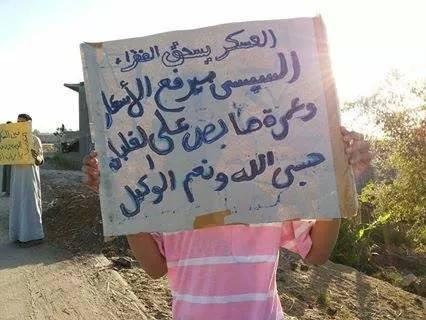 العسكر يسحق الفقراء
السيسى بيرفع الأسعار
وعمرة ما بص على لغلبان
حسبى الله ونعم الوكيل